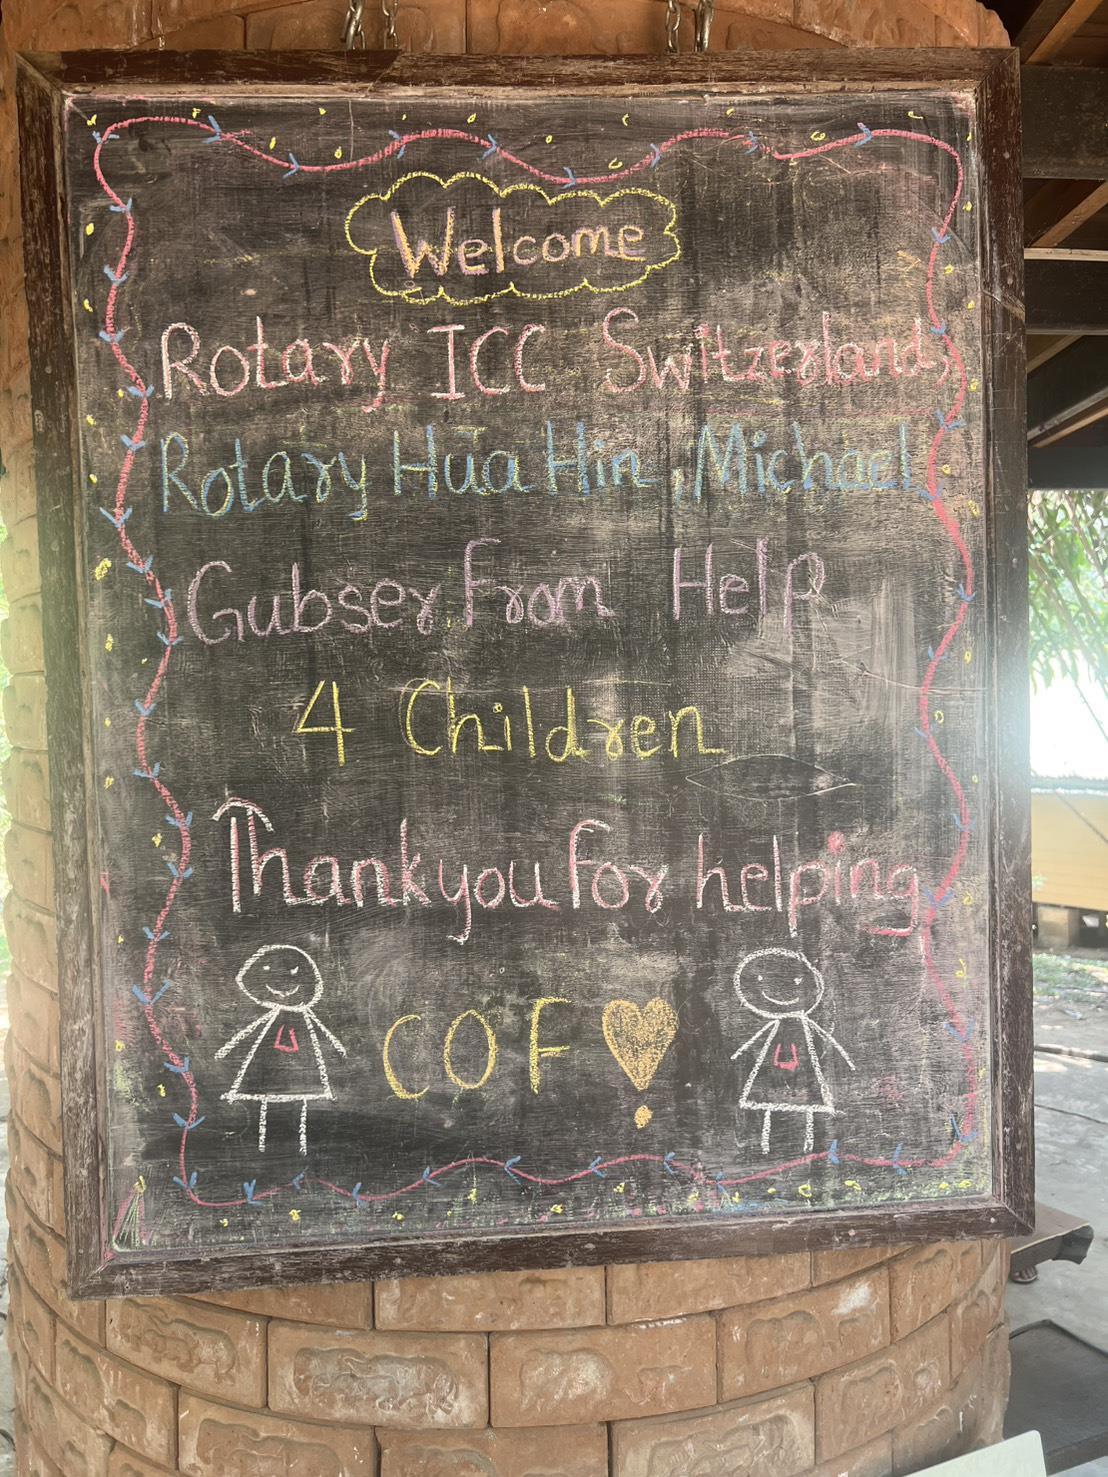 Welcome
Rotary ICC Switzerland,
Rotary Hua Hin, Michael
Gubser From Help
4 Children
Thank you For helping
COF